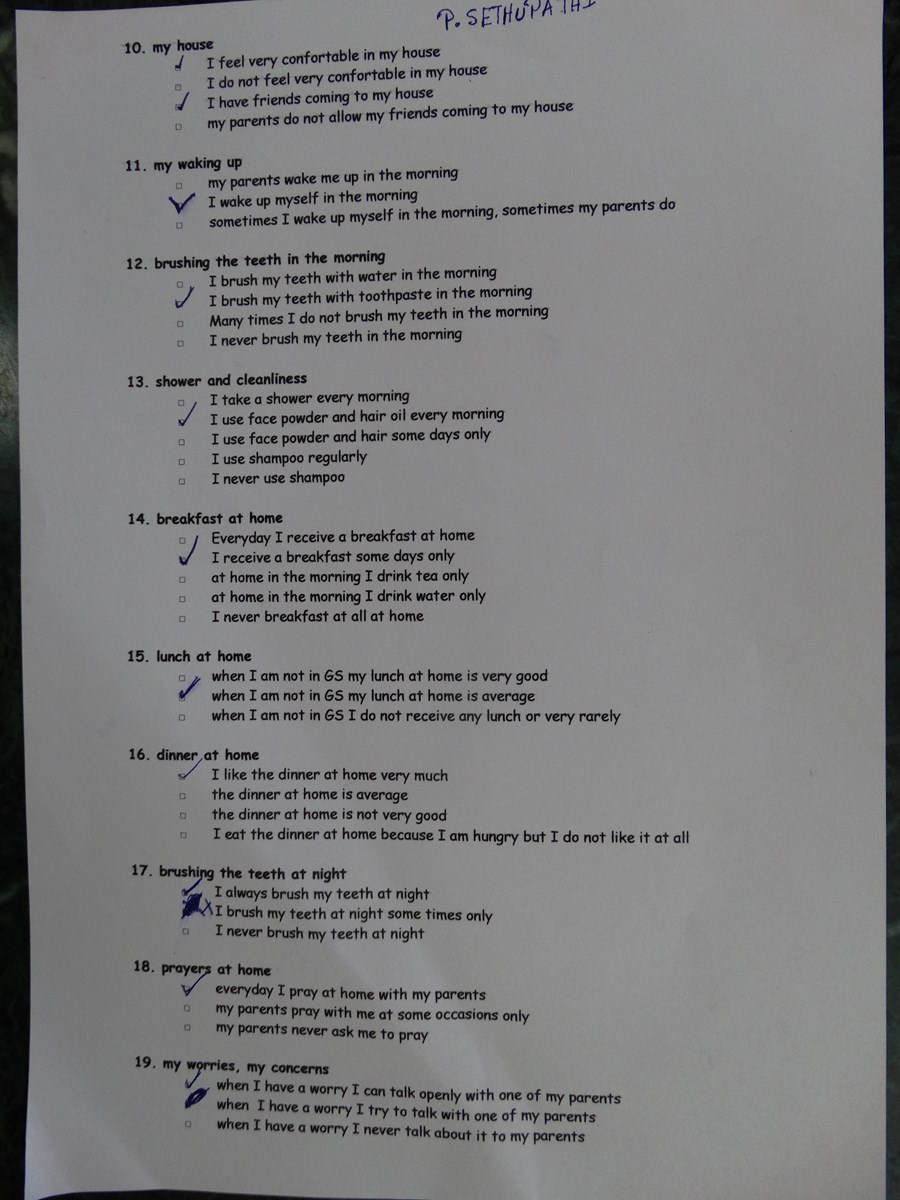 P. SETHUPATHI
10. my house
I feel very confortable in my house
I do not feel very confortable in my house
I have friends coming to my house
my parents do not allow my friends coming to my house
11. my waking up
my parents wake me up in the morning
I wake up myself in the morning
sometimes I wake up myself in the morning, sometimes my parents do
12. brushing the teeth in the morning
I brush my teeth with water in the morning
I brush my teeth with toothpaste in the morning
Many times I do not brush my teeth in the morning
I never brush my teeth in the morning
13. shower and cleanliness
I take a shower every morning
I use face powder and hair oil every morning
I use face powder and hair some days only
I use shampoo regularly
I never use shampoo
14. breakfast at home
Everyday I receive a breakfast at home
I receive a breakfast some days only
at home in the morning I drink tea only
at home in the morning I drink water only
I never breakfast at all at home
15. lunch at home
when I am not in GS my lunch at home is very good
when I am not in GS my lunch at home is average
when I am not in GS I do not receive any lunch or very rarely
16. dinner at home
I like the dinner at home very much
the dinner at home is average
the dinner at home is not very good
I eat the dinner at home because I am hungry but I do not like it at all
17. brushing the teeth at night
I always brush my teeth at night
I brush my teeth at night some times only
I never brush my teeth at night
18. prayers at home
everyday I pray at home with my parents
my parents pray with me at some occasions only
my parents never ask me to pray
19. my worries, my concerns
when I have a worry I can talk openly with one of my parents
when I have a worry I try to talk with one of my parents
when I have a worry I never talk about it to my parents